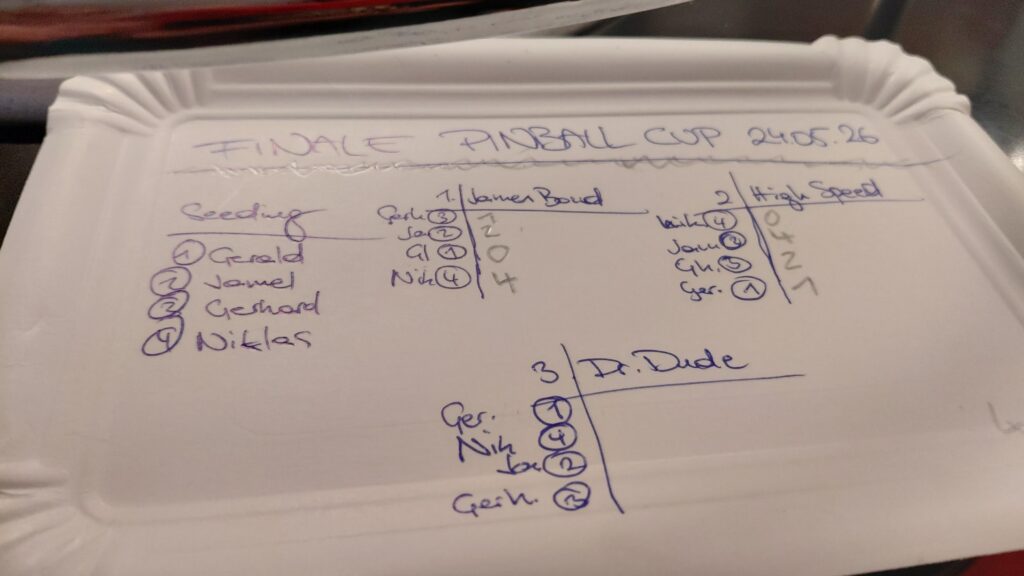 FINALE PINBALL CUP 24.05.26
Seeding
1 Gerald
2 Jamel
3 Gerhard
4 Niklas
1. James Bond
Gerh 3 1
Ja 2 2
Gl 1 0
Nik 4 4
2 High Speed
Nik 4 0
Jam 2 4
Gh. 3 2
Ger. 1 1
3 Dr. Dude
Ger. 1
Nik 4
Ja 2
Gerh. 3